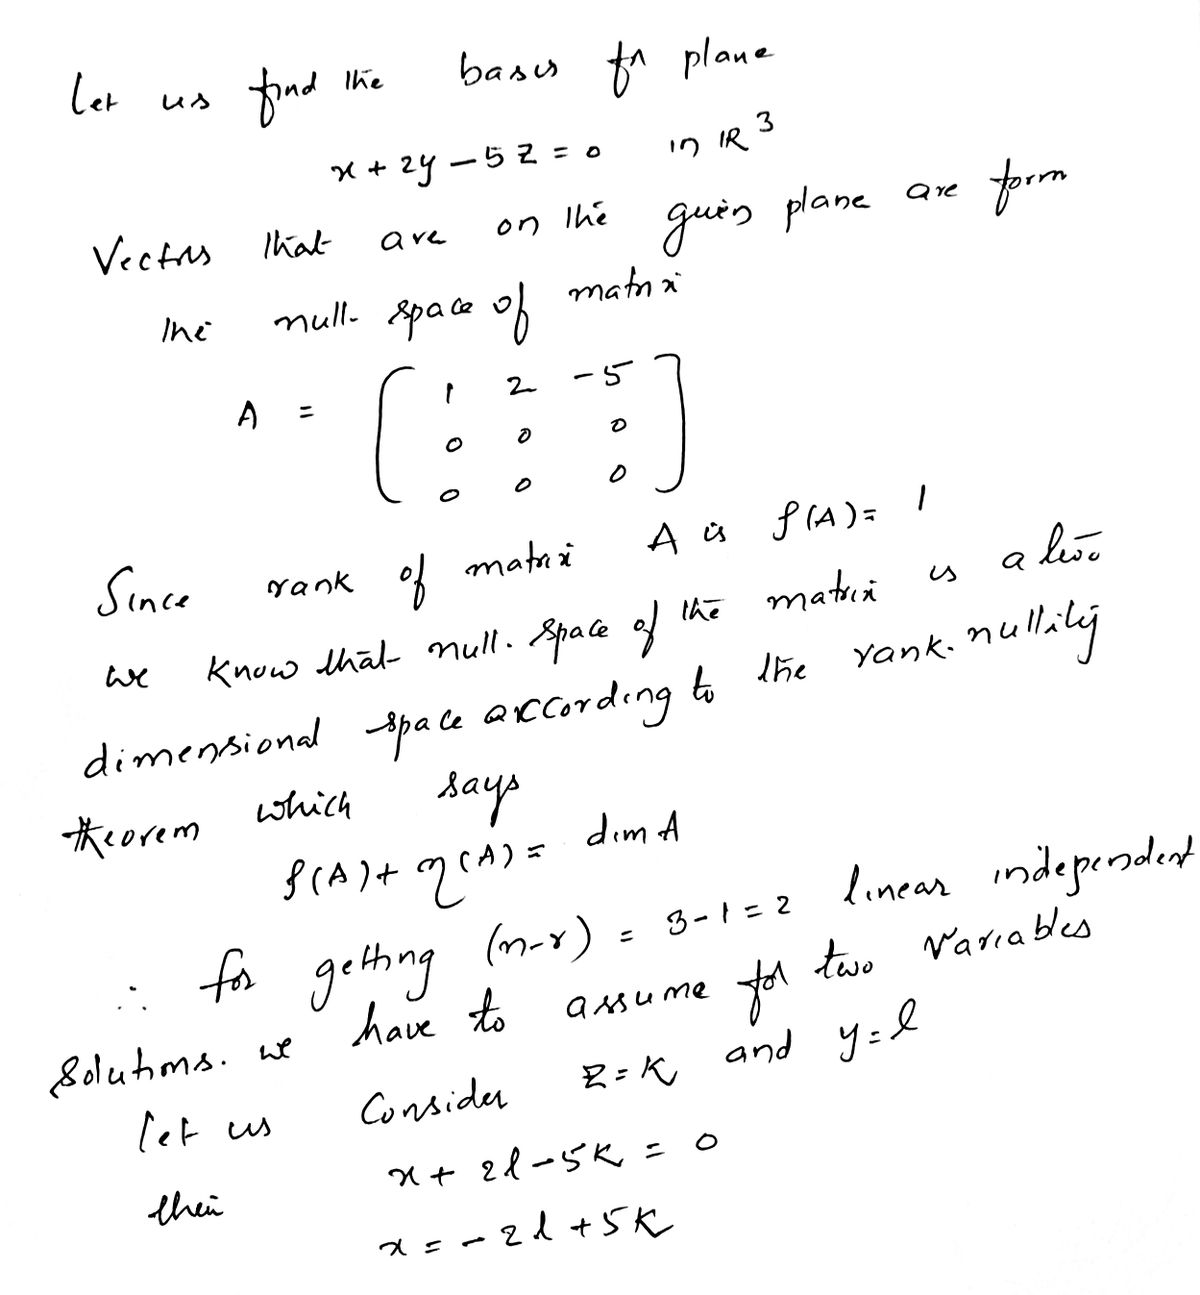 Let us find the basis for plane
x + 2y - 5z = 0 in ℝ³
Vectors that are on the given plane are form
the null-space of matrix
A = [ 1 2 -5
0 0 0
0 0 0 ]
Since rank of matrix A is ρ(A) = 1
we know that null-space of the matrix is a two
dimensional space according to the rank-nullity
theorem which says
ρ(A) + η(A) = dim A
∴ for getting (n-r) = 3-1 = 2 linear independent
solutions. we have to assume for two variables
let us consider z = k and y = l
then x + 2l - 5k = 0
x = -2l + 5k